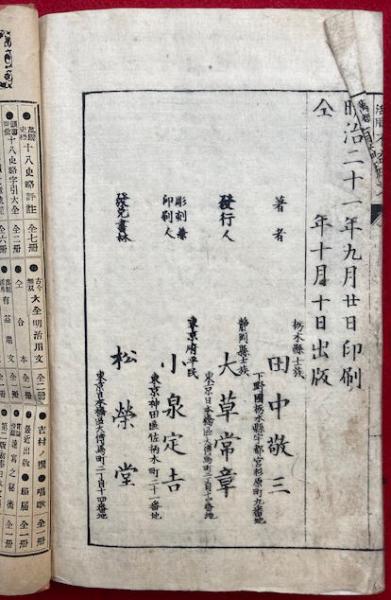 明治二十一年九月廿日印刷
仝　　　年十月十日出版
栃木縣士族
著者　田中敬三
下野國栃木縣宇都宮杉原町九番地
靜岡縣士族
發行人　大草常章
東京日本橋區大傳馬町二丁目十四番地
東京府平民
彫刻兼印刷人　小泉定吉
東京神田區佐柄木町二十一番地
發兌書林　松榮堂
東京日本橋區大傳馬町二丁目十四番地
十八史略評註　全七冊
十八史略字引大全　全二冊
大全明治用文　全二冊
仝　合本　全一冊
有益龜文
吉村ノ櫻　唱歌　全一冊